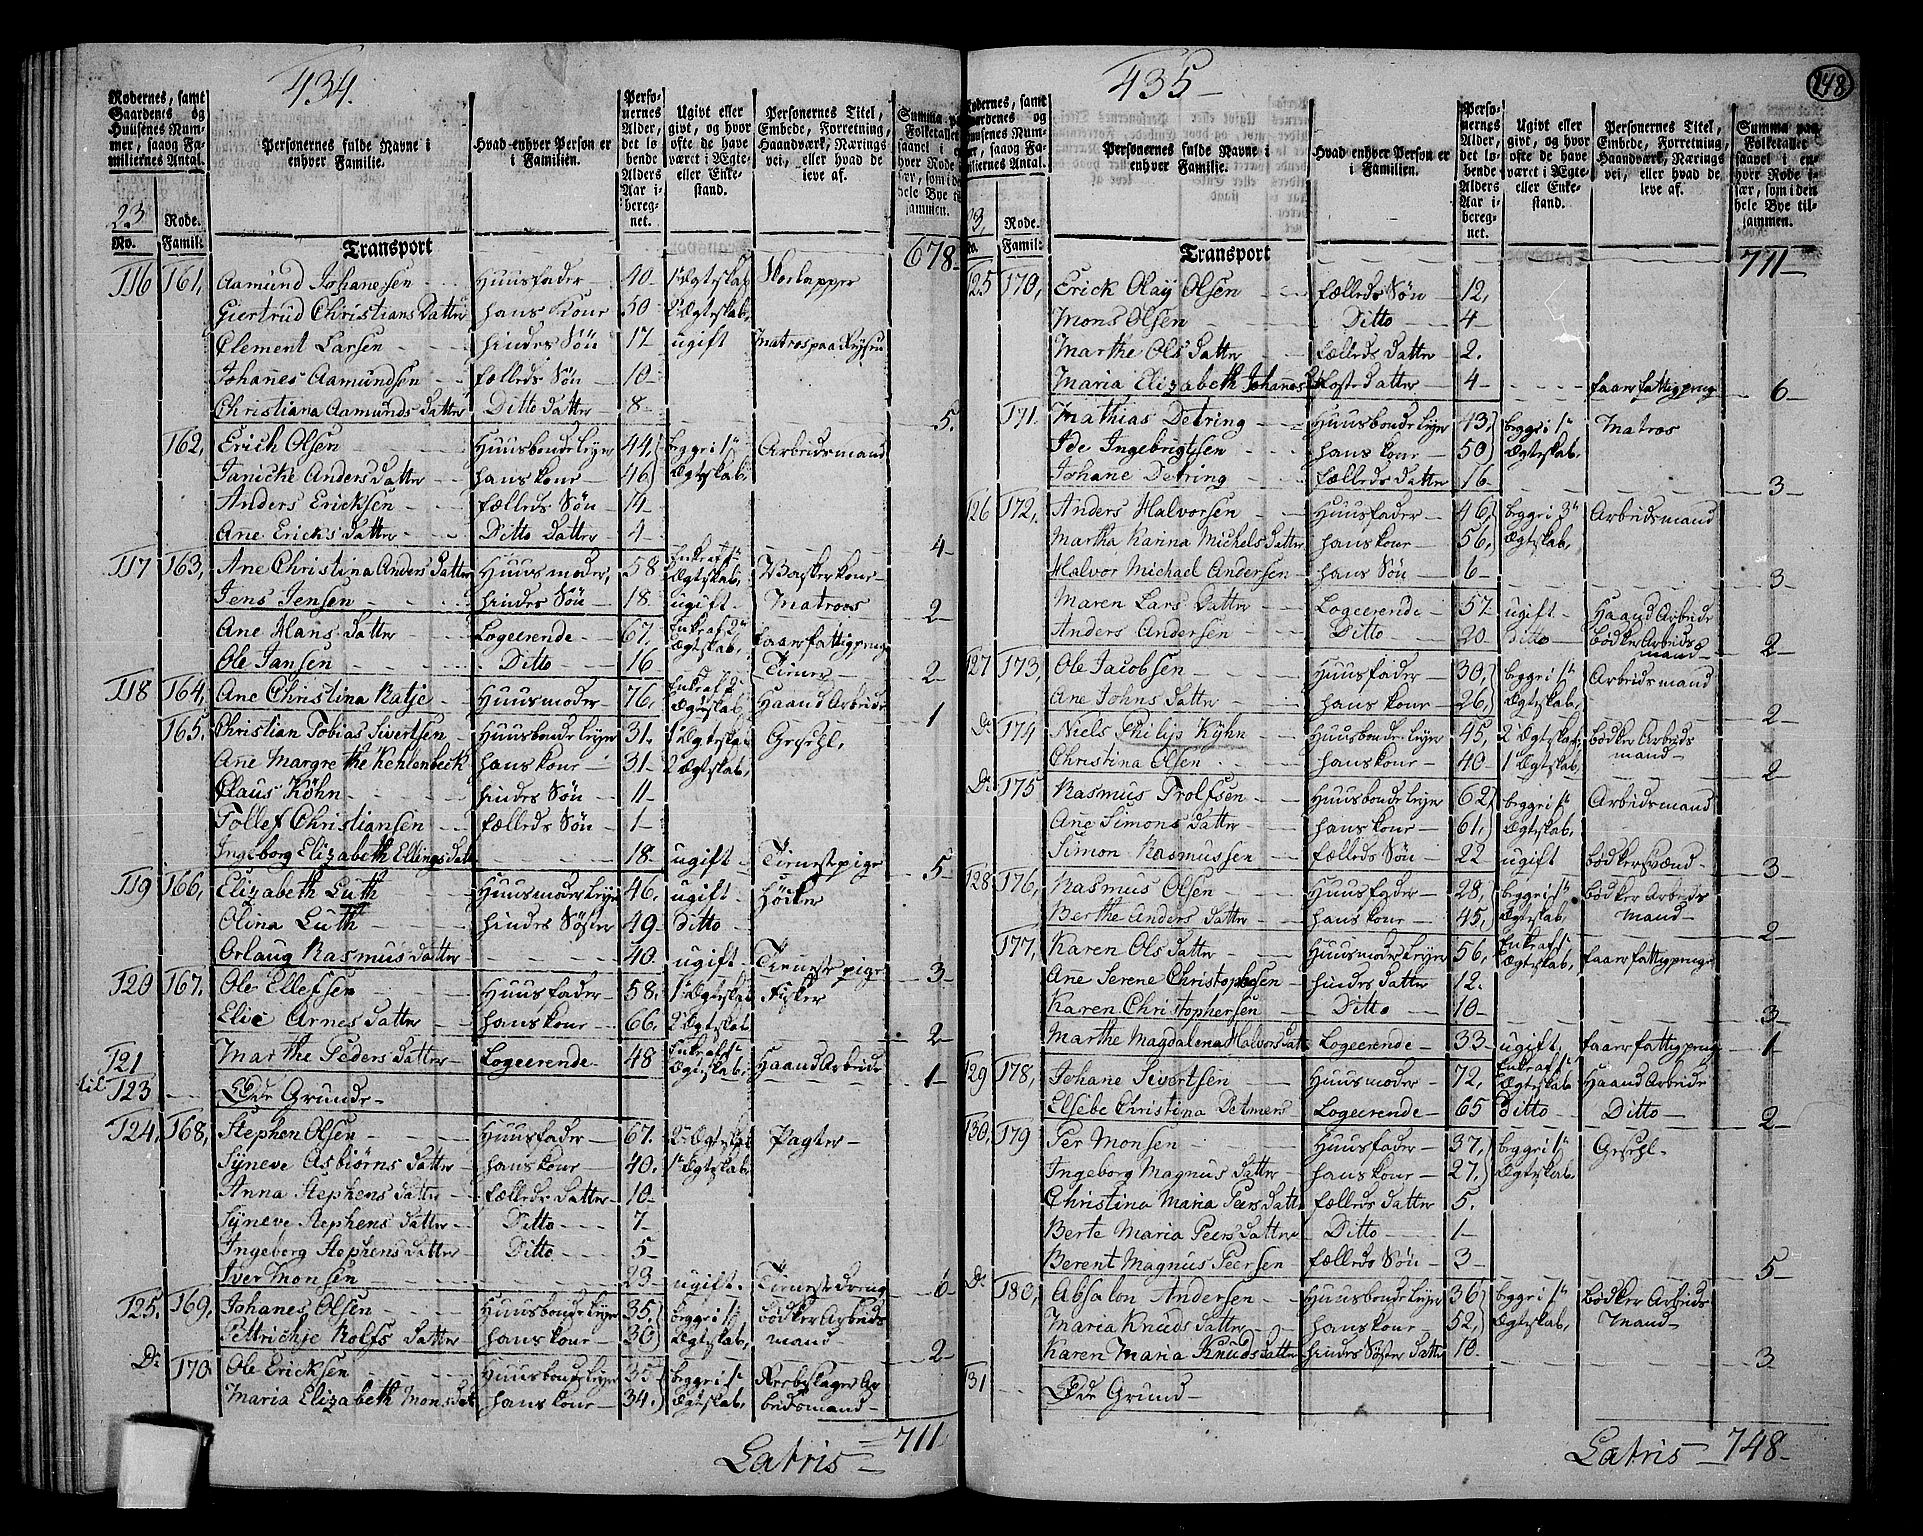 434.
Rodernes, samt Gaardenes og Huusenes Nummer, saavog Familiernes Antal.
Personernes fulde Navne i enhver Familie.
Hvad enhver Person er i Familien.
Personernes Alder, det løbende Alders Aar iberegnet.
Ugivt eller givt, og hvor ofte de have været i Ægte- eller Enkestand.
Personernes Titel, Embede, Forretning, Haandværk, Næringsvei, eller hvad de leve af.
23 Rode.
No. Famil:
Transport 678
116 161, Aamund Johanesen Huusfader 40 1ste Ægteskab
Giertrud Christians Datter hans Kone 50 2 Ægteskab,
Clement Larsen hindes Søn 17 ugift Matros paa Reysen
Johanes Aamundsen fælleds Søn 10
Christiana Aamunds datter Ditto datter 8 5.
162, Erich Olsen Huusbonde leyer 44, begge i 1ste Arbeidsmand
Janicke Anders datter hans kone 46) Ægteskab,
Anders Ericksen fælleds Søn 14
Ane Ericks datter Ditto datter 4 4
117 163, Ane Christina Anders datter Huusmoder, 58 Enke af 1ste Ægteskab, Vaskerkone
Jens Jensen hindes Søn 18 ugift Matroos 2
Ane Hans datter Logeerende 67. Enke af 2det Ægteskab, faaer fattigpenge
Ole Jansen Ditto 16 Tiener 2
118 164, Ane Christina Katje Huusmoder 76, Enke af 2 Ægteskab, Haand Arbeide 1
165. Christian Tobias Sivertsen Huusbonde leyer 31. 1 Ægteskab Gesehl,
Ane Margrethe Kehlenbeck hans kone 31 2 Ægteskab,
Claus Köhn hindes Søn 11
Tollef Christiansen fælleds Søn 1
Ingeborg Elizabeth Ellings datt 18 ugift Tienestepige 5
119 166, Elizabeth Luth Huusmoder leyer 46. ugift Høiker
Olina Luth hindes Søster 49 Ditto
Orlaug Rasmus datter 40. ugift Tieneste pige 3
120 167. Ole Ellefsen Huusfader 58. 1 Ægteskab Fisker
Elie Arnes datter hans kone 66. 2 Ægteskab 2
121 Marthe Peders datter Logeerende 48 Enke af 1 Ægteskab, Haand Arbeide 1
til 123 Øde Grunde
124, 168, Stephen Olsen Huusfader 67. 2 Ægteskab Pagter
Synneve Asbiørns datter hans kone 40. 1 Ægteskab,
Anna Stephens datter fælleds datter 10
Synneve Stephens datter Ditto 7
Ingeborg Stephens datter Ditto 5
Iver Monsen 23 ugift. Tienestedreng 6
125. 169, Johanes Olsen Huusbonde leyer 35. begge i 1 Bødker Arbeids
Pettrichje Rolfs datter hans kone 36) Ægteskab, mand 2
Do 170 Ole Ericksen Huusbonde leyer 35 begge i 1 Reebslager Ar
Maria Elizabeth Mons dat hans kone 34.) Ægteskab, beidsmand
Latris 711
435
148
Rodernes, samt Gaardenes og Huusenes Nummer, saavog Familiernes Antal.
Personernes fulde Navne i enhver Familie.
Hvad enhver Person er i Familien.
Personernes Alder, det løbende Alders Aar iberegnet.
Ugivt eller givt, og hvor ofte de have været i Ægte- eller Enkestand.
Personernes Titel, Embede, Forretning, Haandværk, Næringsvei, eller hvad de leve af.
Summa paa Folketallet saavel i enhver Rode især, som i den hele Bye tilsammen.
23, Rode.
No. Famil:
Transport 711
125 170, Erick Olay Olsen fælleds Søn 12,
Mons Olsen Ditto 4
Marthe Ols datter fælleds datter 2.
Maria Elizabeth Johanes dat Foster datter 4 faaer fattigpenge 6
171. Mathias Detring Huusbonde leyer 43, begge i 1 Matros
Ide Ingebrigtsen hans kone 50) Ægteskab,
Johane Detring fælleds datter 16 3
126 172, Anders Halvorsen Huusfader 46, begge i 3 Arbeidsmand
Martha Karina Michels datter hans kone 56, Ægteskab,
Halvor Michael Andersen hans Søn 6 3
Maren Lars datter Logeerende 57 ugift Haand Arbeide
Anders Andersen Ditto 20 Ditto Bødker Arbeids mand 2
127 173, Ole Jacobsen Huusfader 30, begge i 1 Arbeidsmand
Ane Johns datter hans kone 26, Ægteskab, 2
Do 174 Niels Philip Kyhn Huusbonde leyer 45, 2 Ægteskab, Bødker Arbeids
Christina Olsen hans kone 40 1 Ægteskab, mand 2
Do 175 Rasmus Trolfsen Huusbonde leyer 62, begge i 1 Arbeidsmand
Ane Simons datter hans kone 61, Ægteskab,
Simon Rasmussen fælleds Søn 22 ugift Bødkersvend 3
128 176, Rasmus Olsen Huusfader 28, begge i 1 Bødker Arbeids
Berthe Anders datter hans kone 45, Ægteskab, Mand 2
177, Karen Ols datter Huusmoder leyer 56, Enke af 1 Ægteskab, faaer fattigpenge
Ane Serene Christophersen hindes datter 12.
Karen Christophersen Ditto 10 3
Marthe Magdalena Halvors datt Logeerende 33 ugift, faaer fattigpenge 1
129 178, Johane Sivertsen Huusmoder 72, Enke af 1 Ægteskab, Haand Arbeide
Elsebe Christina Detmers Logeerende 65 Ditto Ditto 2
130, 179 Per Monsen Huusfader 37, begge i 1 Gesehl
Ingeborg Magnus datter hans kone 27, Ægteskab,
Christina Maria Peers datter fælleds datter 5.
Berte Maria Peers datter Ditto 1
Berent Magnus Peersen fælleds Søn 3 5
Do 180, Absalon Andersen Huusbonde leyer 36) begge i 1 Bødker Arbeids
Maria Knuds datter hans kone 52, Ægteskab, Mand
Karen Maria Knuds datter hindes Søster datter 10 3
131 Øde Grund
Latris 748